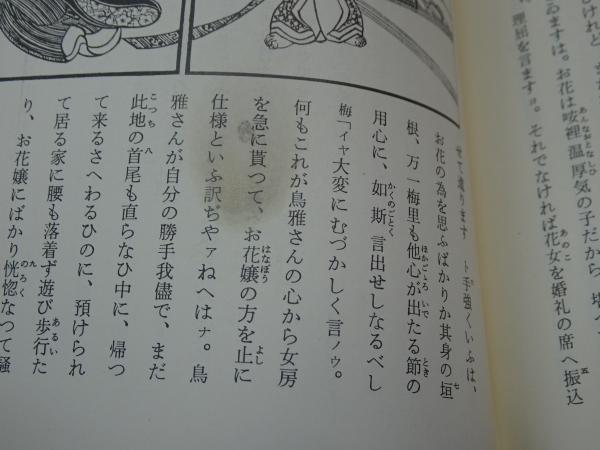 むけれど
ゐますは。お花は咬裡温厚気の子だから
理屈を言ますョ。それでなければ花女を婚礼の席へ振込
せて遣ります　ト手強くいふは、
お花の為を思ふばかりか其身の垣
根、万一梅里も他心が出たる節の
用心に、如斯言出せしなるべし
梅「イヤ大変にむづかしく言ノウ。
何もこれが鳥雅さんの心から女房
を急に貰つて、お花嬢の方を止に
仕様といふ訳ぢやァねへはナ。鳥
雅さんが自分の勝手我儘で、まだ
此地の首尾も直らなひ中に、帰つ
て来るさへわるひのに、預けられ
て居る家に腰も落着ず遊び歩行た
り、お花嬢にばかり恍惚なつて騒